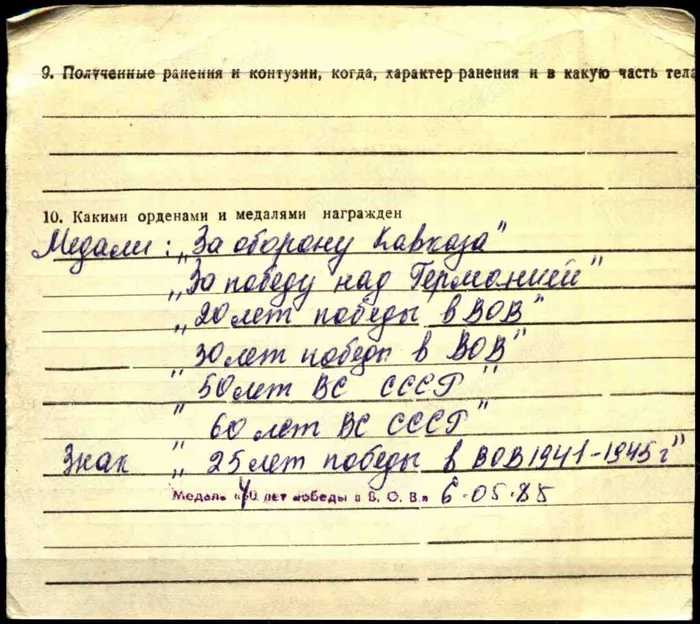 9. Полученные ранения и контузии, когда, характер ранения и в какую часть тела
10. Какими орденами и медалями награжден
Медали: „За оборону Кавказа"
„За победу над Германией"
„20 лет победы в ВОВ"
„30 лет победы в ВОВ"
" 50 лет ВС СССР "
" 60 лет ВС СССР "
Знак „ 25 лет победы в ВОВ 1941-1945 г"
Медаль «40 лет победы в В. О. В.» 6.05.85